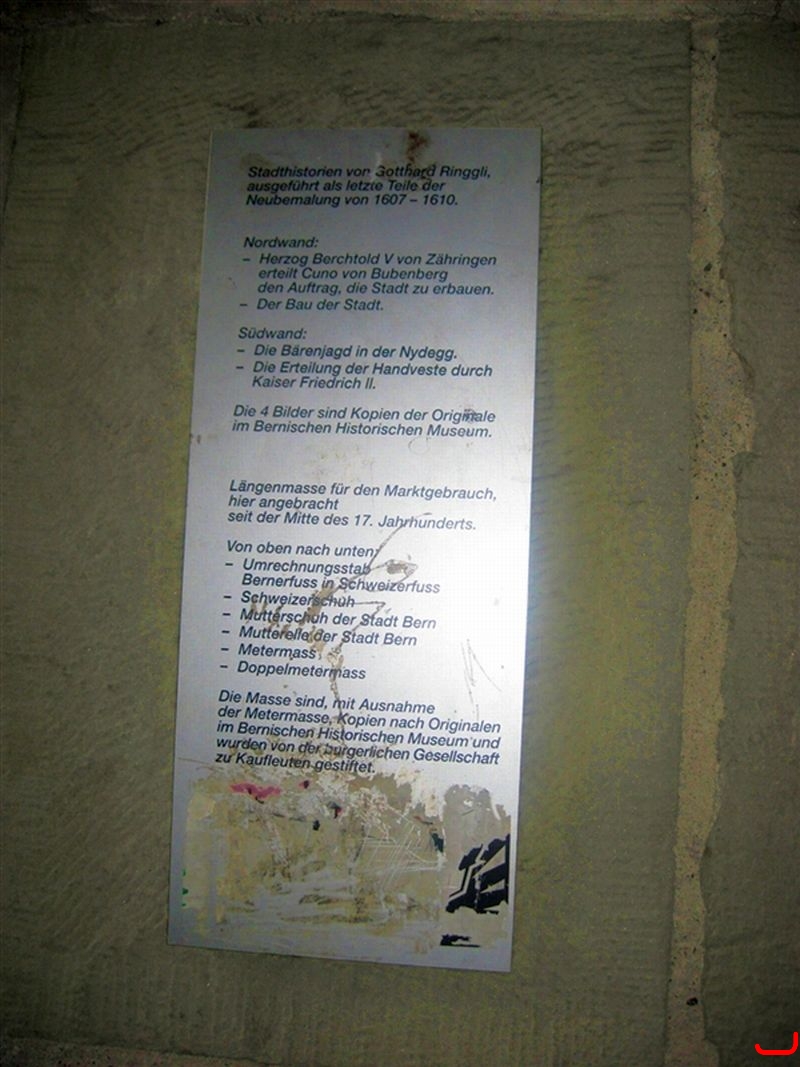 Stadthistorien von Gotthard Ringgli,
ausgeführt als letzte Teile der
Neubemalung von 1607 – 1610.
Nordwand:
– Herzog Berchtold V von Zähringen
erteilt Cuno von Bubenberg
den Auftrag, die Stadt zu erbauen.
– Der Bau der Stadt.
Südwand:
– Die Bärenjagd in der Nydegg.
– Die Erteilung der Handveste durch
Kaiser Friedrich II.
Die 4 Bilder sind Kopien der Originale
im Bernischen Historischen Museum.
Längenmasse für den Marktgebrauch,
hier angebracht
seit der Mitte des 17. Jahrhunderts.
Von oben nach unten:
– Umrechnungsstab
Bernerfuss in Schweizerfuss
– Schweizerschuh
– Mutterschuh der Stadt Bern
– Mutterelle der Stadt Bern
– Metermass
– Doppelmetermass
Die Masse sind, mit Ausnahme
der Metermasse, Kopien nach Originalen
im Bernischen Historischen Museum und
wurden von der burgerlichen Gesellschaft
zu Kaufleuten gestiftet.